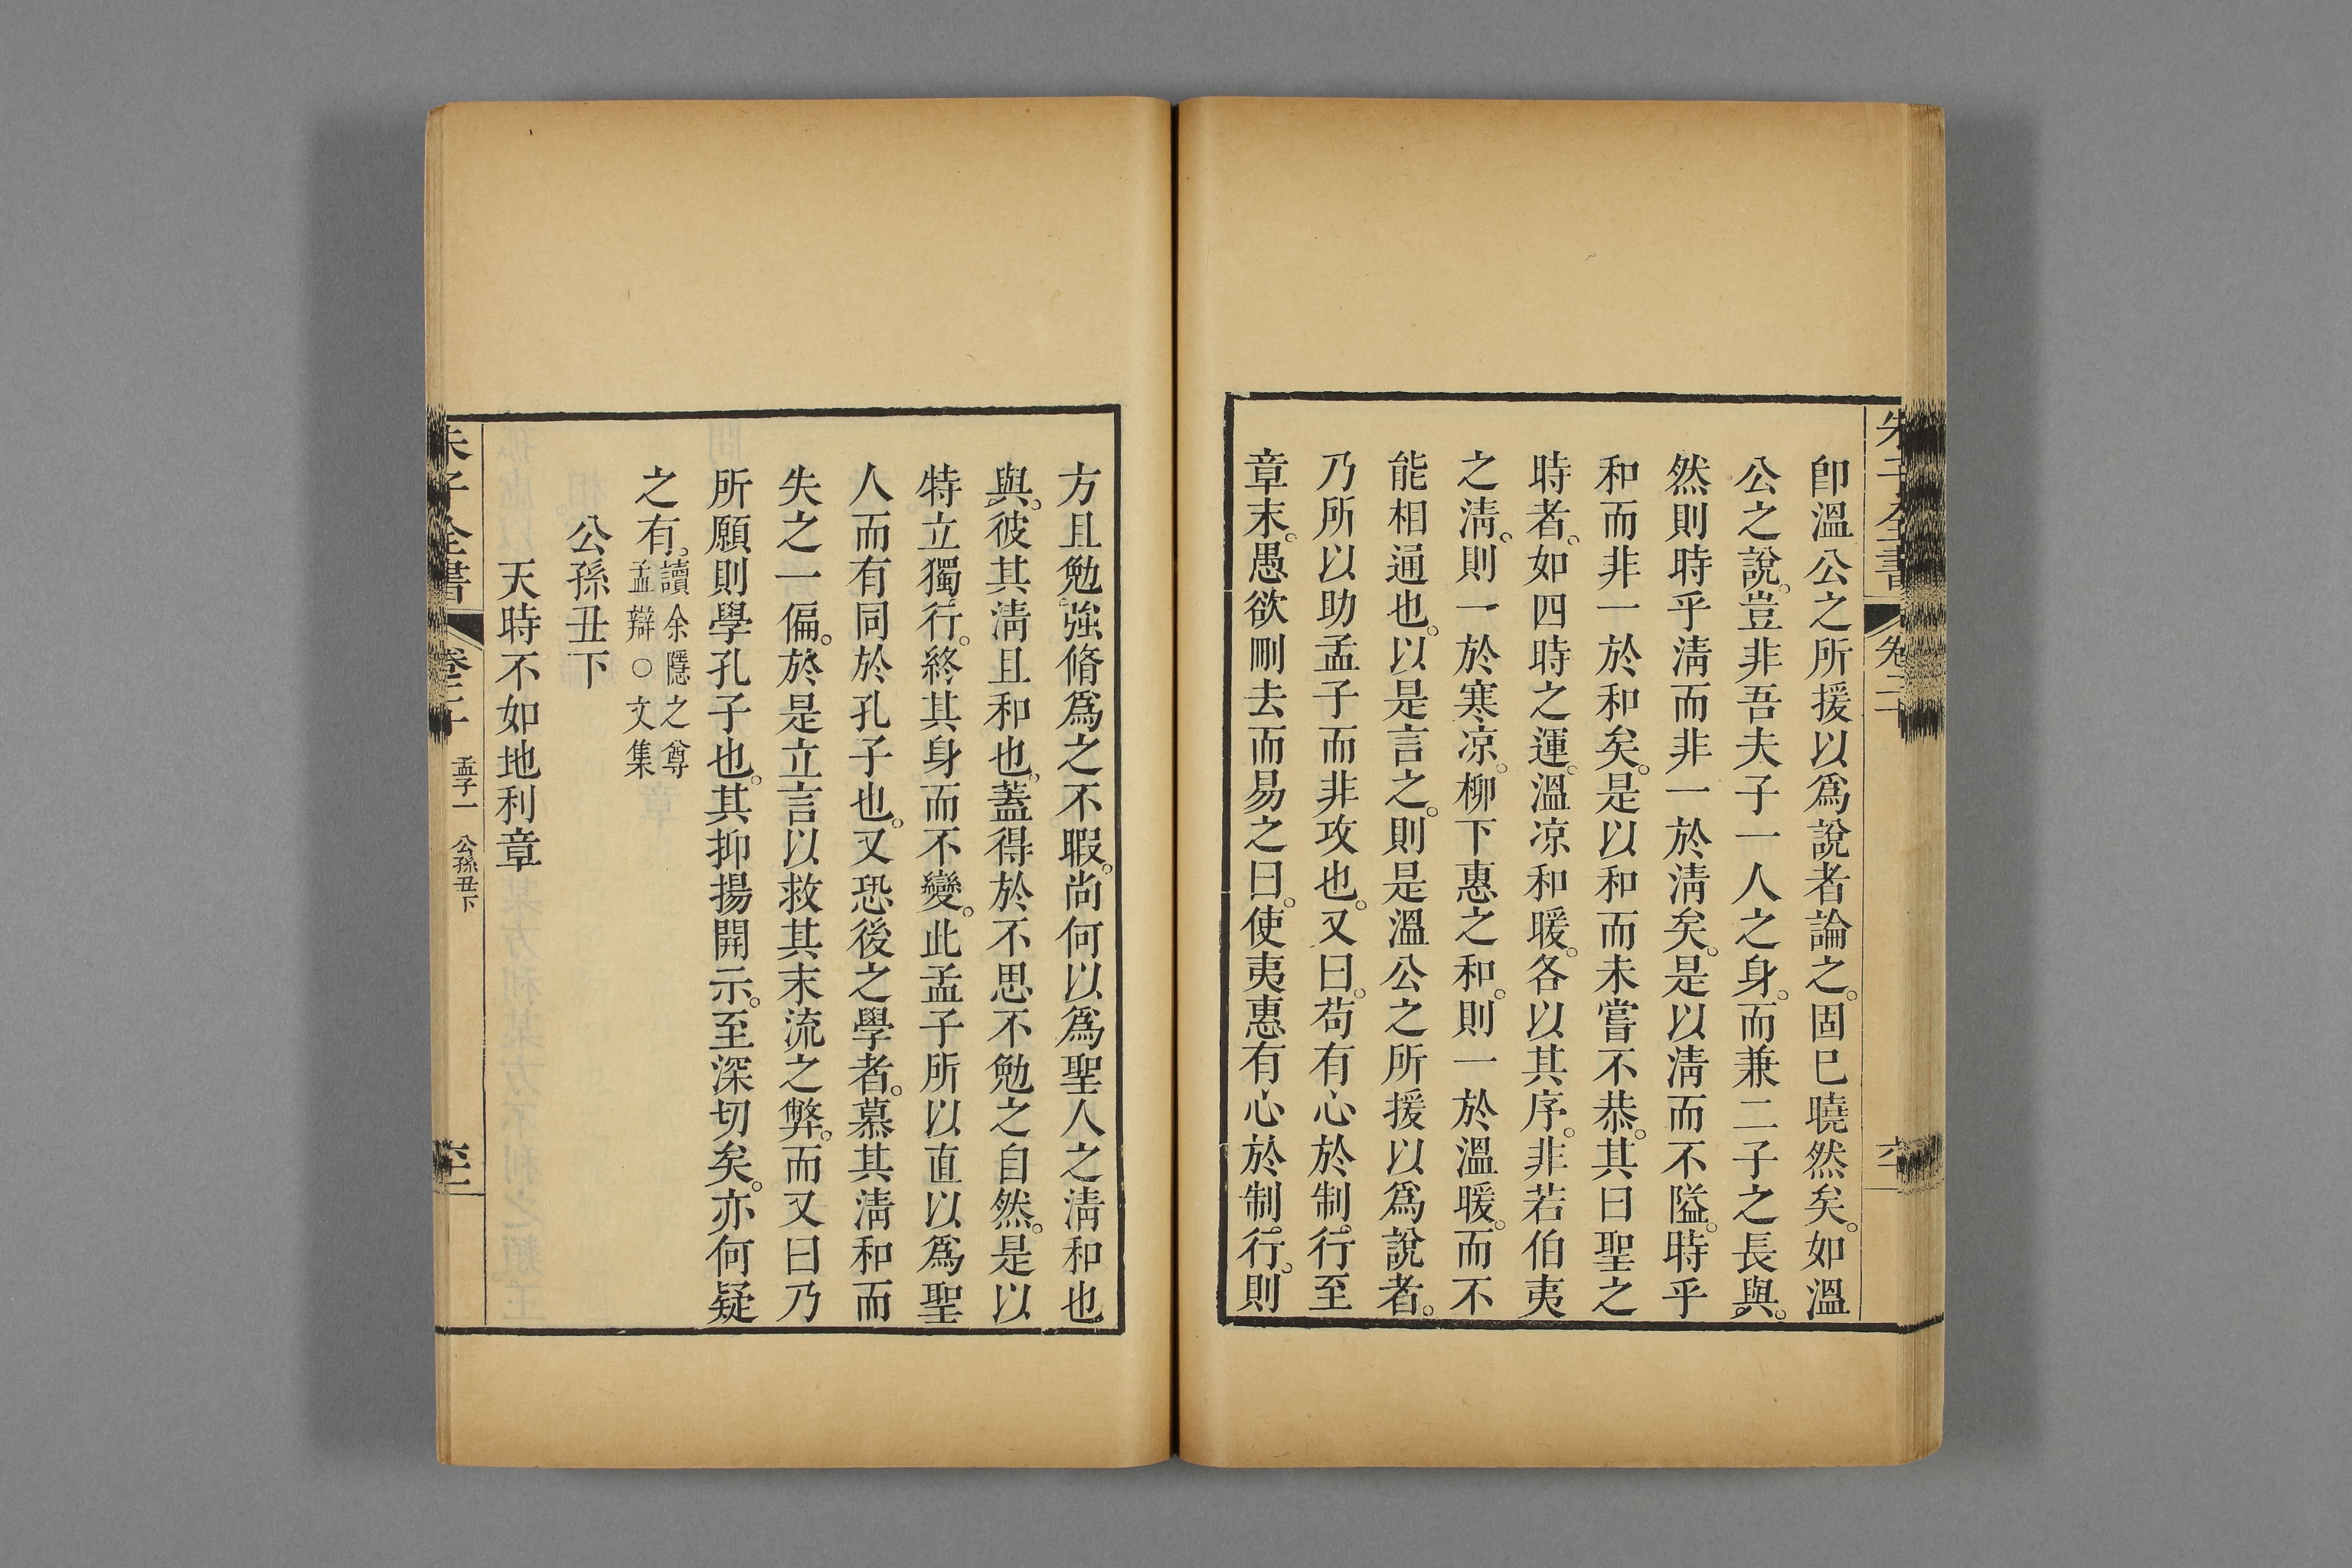 卽溫公之所援以爲說者論之。固已曉然矣。如溫
公之說。豈非吾夫子一人之身。而兼二子之長與。
然則時乎淸而非一於淸矣。是以淸而不隘。時乎
和而非一於和矣。是以和而未嘗不恭。其曰聖之
時者。如四時之運。溫凉和暖。各以其序。非若伯夷
之淸。則一於寒凉。柳下惠之和。則一於溫暖。而不
能相通也。以是言之。則是溫公之所援以爲說者。
乃所以助孟子而非攻也。又曰。苟有心於制行。至
章末。愚欲刪去而易之曰。使夷惠有心於制行。則
方且勉強脩爲之不暇。尚何以爲聖人之淸和也
與。彼其淸且和也。蓋得於不思不勉之自然。是以
特立獨行。終其身而不變。此孟子所以直以爲聖
人而有同於孔子也。又恐後之學者。慕其淸和而
失之一偏。於是立言以救其末流之弊。而又曰乃
所願則學孔子也。其抑揚開示。至深切矣。亦何疑
之有。讀余隱之尊
孟辯○文集
公孫丑下
天時不如地利章
朱子全書
卷二十
孟子一 公孫丑下